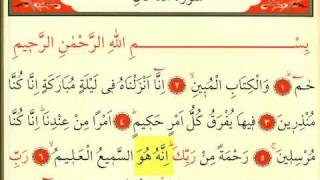 بِسْمِ اللهِ الرَّحْمٰنِ الرَّحِيمِ
حٰمٓ ﴿١﴾ وَالْكِتَابِ الْمُبِينِ ﴿٢﴾ اِنَّٓا اَنْزَلْنَاهُ فِي لَيْلَةٍ مُبَارَكَةٍ اِنَّا كُنَّا
مُنْذِرِينَ ﴿٣﴾ فِيهَا يُفْرَقُ كُلُّ اَمْرٍ حَكِيمٍ ﴿٤﴾ اَمْرًا مِنْ عِنْدِنَا اِنَّا كُنَّا
مُرْسِلِينَ ﴿٥﴾ رَحْمَةً مِنْ رَبِّكَ اِنَّهُ هُوَ السَّمِيعُ الْعَلِيمُ ﴿٦﴾ رَبِّ